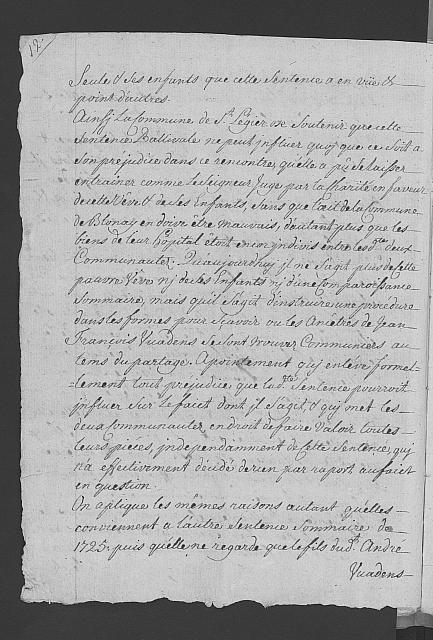 12.
Seule & ses enfants que cette Sentence a en vüe &
point d'autres.
Ainsj La Commune de St. Legier ose Soutenir que cette
Sentence Baillivale ne peut influer quoj que ce Soit a
Son prejudice dans ce rencontre, qu'elle a pû se laisser
entrainer comme le Seigneur Juge par la charité en faveur
de cette Vêve & de ses Enfants, Sans que l'ait de la Commune
de Blonay en doive etre mauvais, d'autant plus que les
biens de leur hôpital étoit encor indivis entre les dtes. deux
Communautez. Qu'aujourdhuj il ne S'agit plus de cette
pauvre Vêve nj de ses Enfants nj d'une Comparoissance
Sommaire, mais qu'il S'agit d'instruire une procedure
dans les formes pour Sçavoir ou les Ancêtres de Jean
François Vuadens se Sont trouver Communiers au
tems du partage. Apointement quj enléve formel-
-lement tout prejudice que lad. te. Sentence pourroit
influer Sur Le faict dont il S'agit, & quj met les
deux Communautez en droit de faire Valoir toutes
leurs pièces, independamment de Cette Sentence, quj
n'a effectivement decidé de rien par raport au faict
en question.
On aplique les mêmes raisons autant qu'elles
conviennent a l'autre Sentence Sommaire de
1725. puis qu'elle ne regarde que le fils dud. t. André
Vuadens